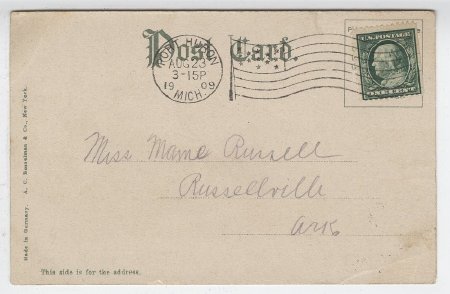 Post Card.
PORT HURON
AUG 23
3-15P
1909
MICH.
U.S. POSTAGE
Miss Mame Russell
Russellville
Ark
This side is for the address.
Made in Germany. A. C. Bosselman & Co., New York.